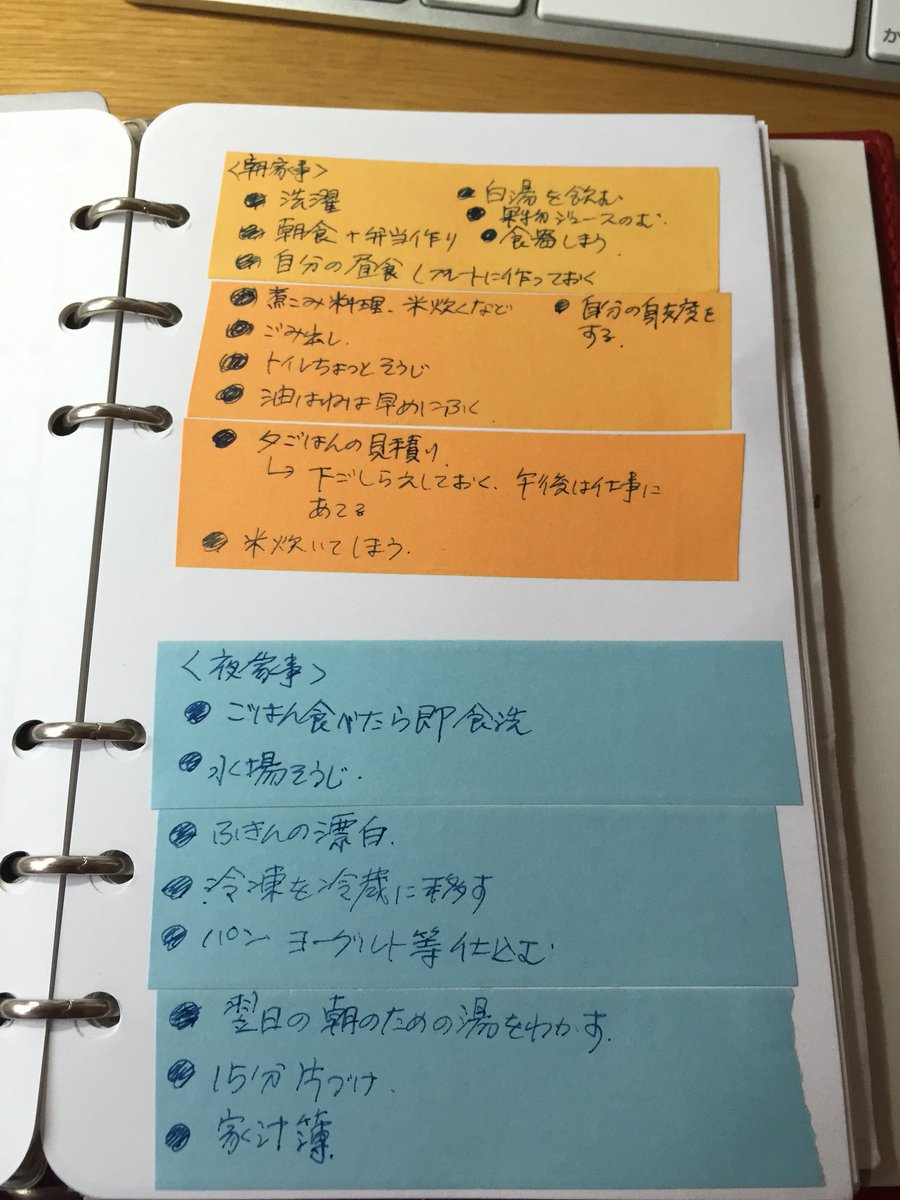 か
〈朝家事〉
● 洗濯
● 白湯を飲む
● 果物ジュースのむ.
● 朝食+弁当作り
● 食器しまう
● 自分の昼食 1プレートに作っておく
● 煮こみ料理、米炊くなど
● 自分の身支度を
する.
● ごみ出し.
● トイレちょっとそうじ
● 油はねは早めにふく
● 夕ごはんの見積り
↳ 下ごしらえしておく、午後は仕事に
あてる
● 米炊いてしまう.
〈夜家事〉
● ごはん食べたら即食洗
● 水場そうじ.
● ふきんの漂白.
● 冷凍を冷蔵に移す
● パン ヨーグルト等仕込む
● 翌日の朝のための湯をわかす.
● 15分片づけ.
● 家計簿